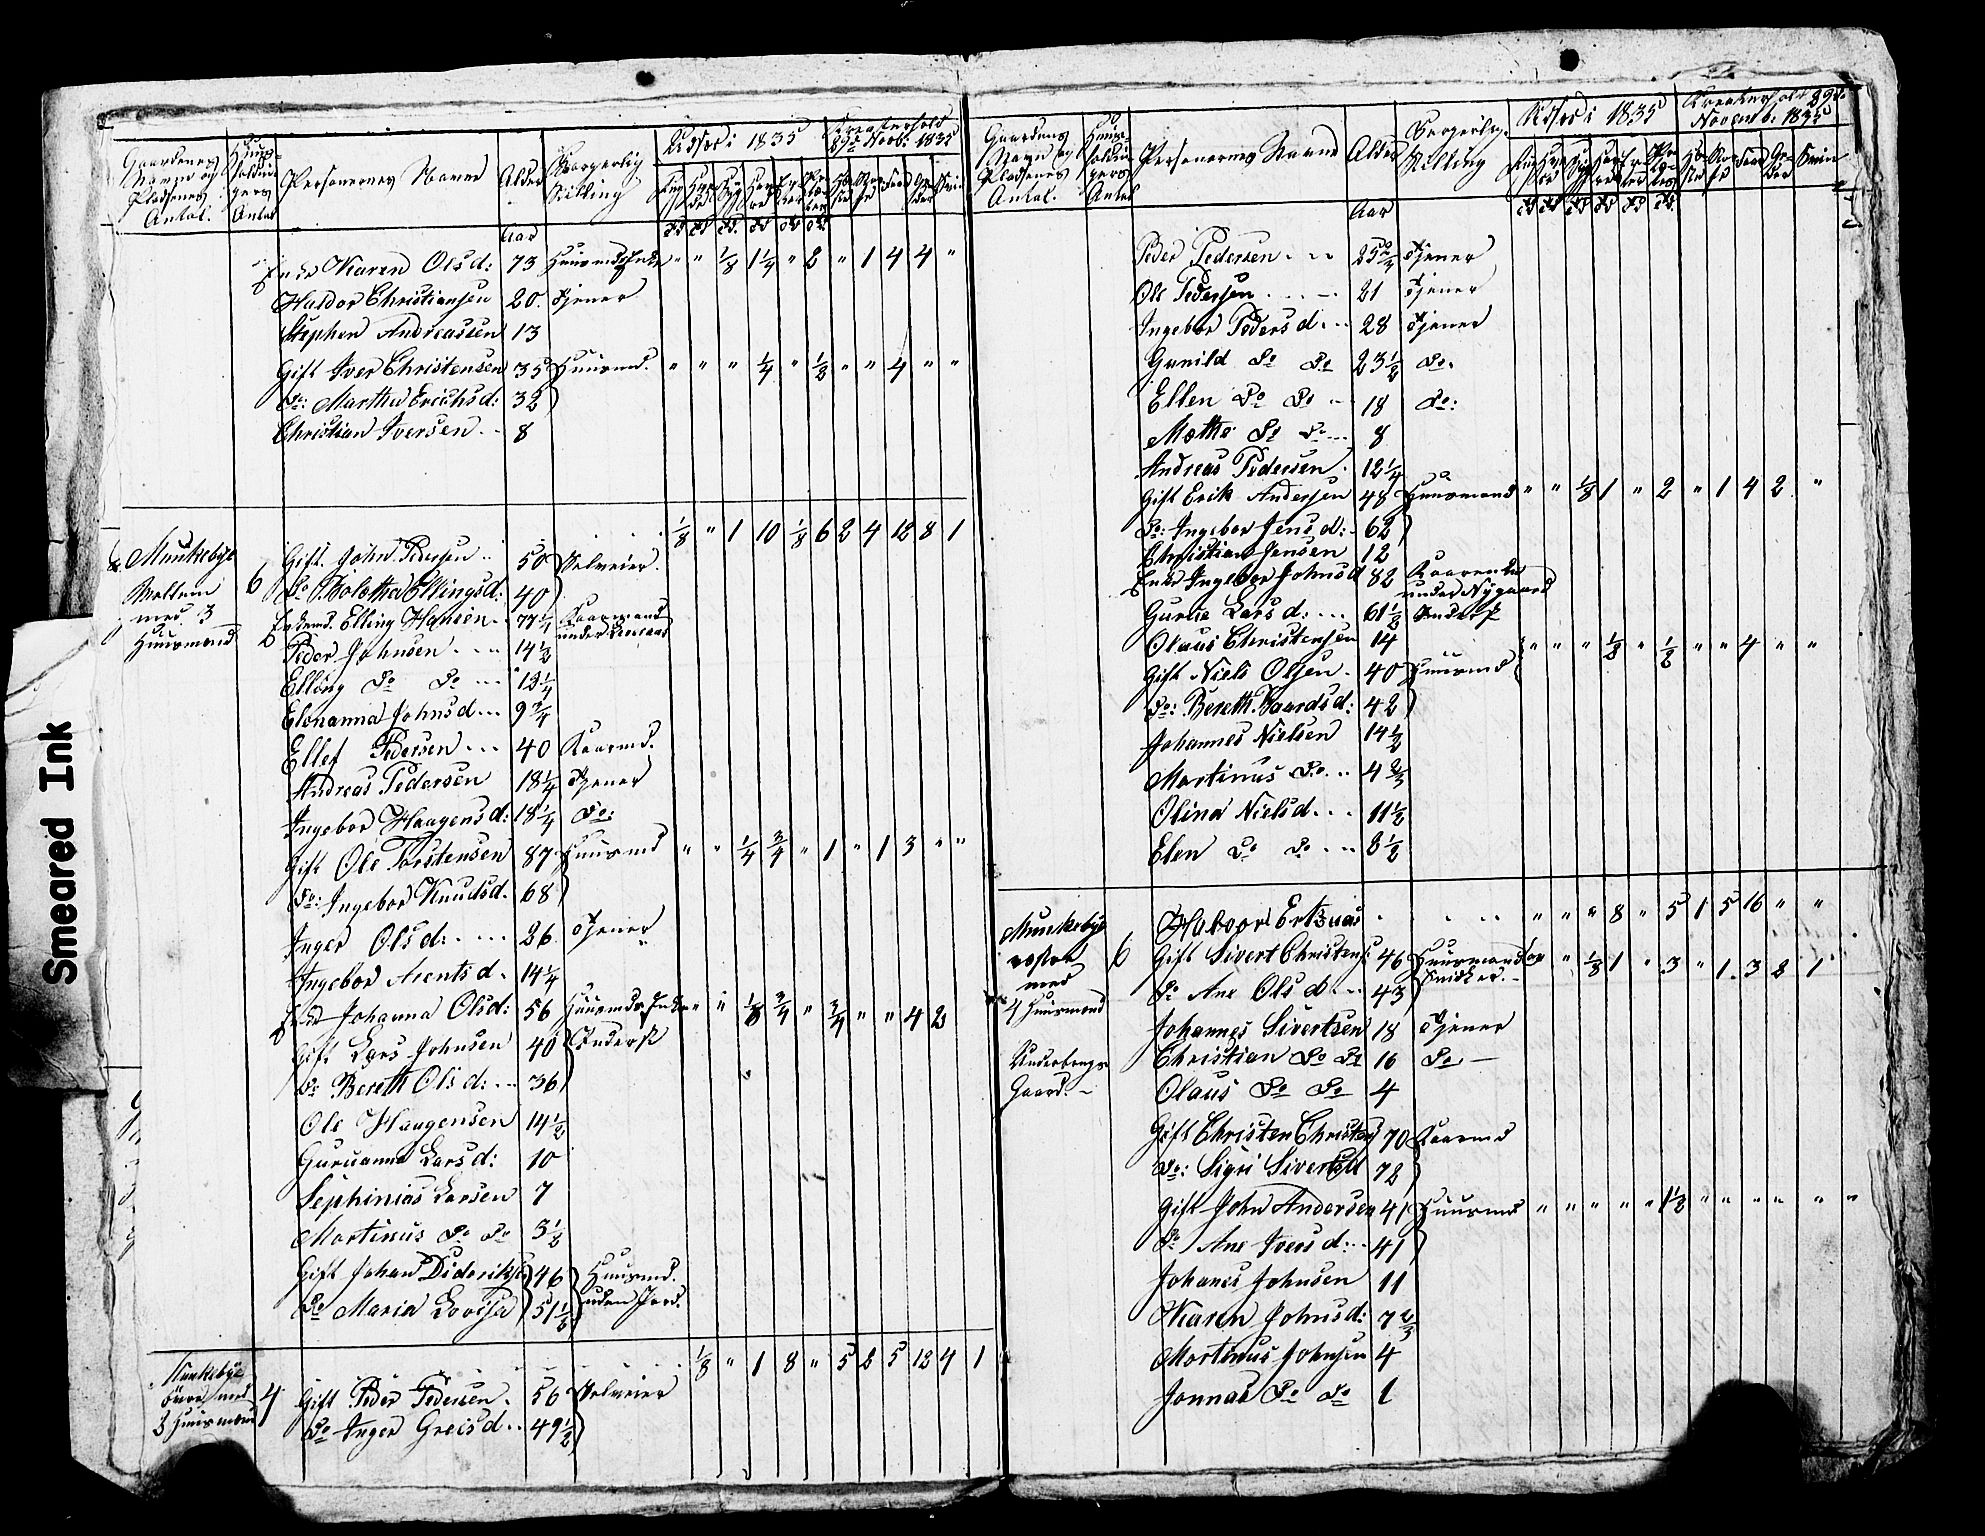 Smeared Ink
Gaardenes Navne og Pladsenes Antal. Huus-holdningers Antal Personernes Navne Alder Borgerlig Stilling Udsæd i 1835 Kreaturhold 29de Novb: 1835
Aar
Enke Karen Olsd: 73 Huusmds Enke " " 1/8 1 1/4 " 2 " 1 4 4 "
Haldor Christiansen 20. Tjener
Stephen Andreassen 13
Gift Iver Christensen 35 Huusmd. " " " 1/4 " 1/2 " " 4 " "
Do: Martha Erichsd: 32
Christian Iversen .. 8
Munkebye 1/8 " 1 10 1/8 6 2 4 12 8 1
Gift John Pedersen .. 50 Selveier.
med 3 6 Do Bolethe Ellingsd: 40
Enkemd. Elling Hansen .. 77 1/4 Kaarmand under
Huusmænd Peder Johnsen .... 14 1/2
Elling Do Do ... 12 1/4
Elenanna Johnsd ... 9 3/4
Ellef Pedersen ... 40 Kaarmd.
Andreas Pedersen 18 1/4 Tjener
Ingebor Haagensd: 18 1/4 Do:
Gift Ole Torstensen 87 Huusmd " " 1/4 3/4 " 1 " 1 3 " "
Do: Ingebor Knudsd. 68
Inger Olsd: .... 26 Tjener
Ingebor Arentsd. 14 1/4
Enke Johanna Olsd: 56 Huusmds Enke " " 1/8 3/4 " 3/4 " " 4 2
Gift Lars Johnsen 40 Inderst
Do Bereth Olsd: ... 36
Ole Haagensen 14 1/2
Guruanna Larsd: 10
Sephinias Larsen 7
Martinus Do Do 3 1/2
Gift Johan Dideriks 46 Huusmd.
Do Maria Lovisa 51 1/2 uden Jord.
Munkebye 1/8 " 1 8 " 5 2 5 12 4 1
øvre med 4 Gift Peder Pedersen . 56 Selveier
3 Huusmænd Do Inger Greisd .. 49 1/2
Gaardenes Navn og Pladsenes Antal. Huus-holdningers Antal Personernes Navne Alder Borgerlig Stilling Udsæd i 1835 Kreaturhold 29de Novemb: 1835
Aar
Peder Pedersen ... 25 3/4 Tjener
Ole Pedersen .... 21 Tjener
Ingebor Pedersd ... 28 Tjener
Gunild Do Do 23 1/2 Do.
Ellen Do Do .. 18 Do:
Mothe Do Do ... 8
Andreas Pedersen . 12 1/4
Gift Erik Andersen 48 Huusmand " " 1/8 1 " 2 " 1 4 2 "
Do: Ingebor Jensd: 62
Christian Jensen 12
Enke Ingebor Johnsd 82 Kaarenke under Nygaard
Gurie Larsd: ... 61 1/2 Inderst
Olaus Christensen 14
Gift Niels Olsen . 40 Huusmd " " " 1/2 " 1/2 " " 4 " "
Do: Bereth Baardsd: 42
Johannes Nielsen 14 1/2
Martinus Do .. 4 2/3
Olina Nielsd ... 11 1/2
Elen Do Do .. 8 1/2
Munkebye Halvor " " " 8 " 5 1 5 16 " "
6 Gift Sivert Christens: 46 Huusmand og Snedker . " " 1/8 1 " 3 " 1 3 2 1
med Do Ane Olsd ... 43
4 Huusmænd Johannes Sivertsen 18 Tjener
Underbrugs Christian Do Do 16 Do
Gaard. Olaus Do Do 4
Gift Christen Christens 70 Kaarmd
Do: Sigri Sivertsd 72
Gift John Andersen 41 Huusmd " " " " " 1 1/2 " " " " "
Do Ane Iversd: .. 41
Johanes Johnsen 11
Karen Johnsd: 7 2/3
Martinus Johnsen 4
Jonnas Do Do 1